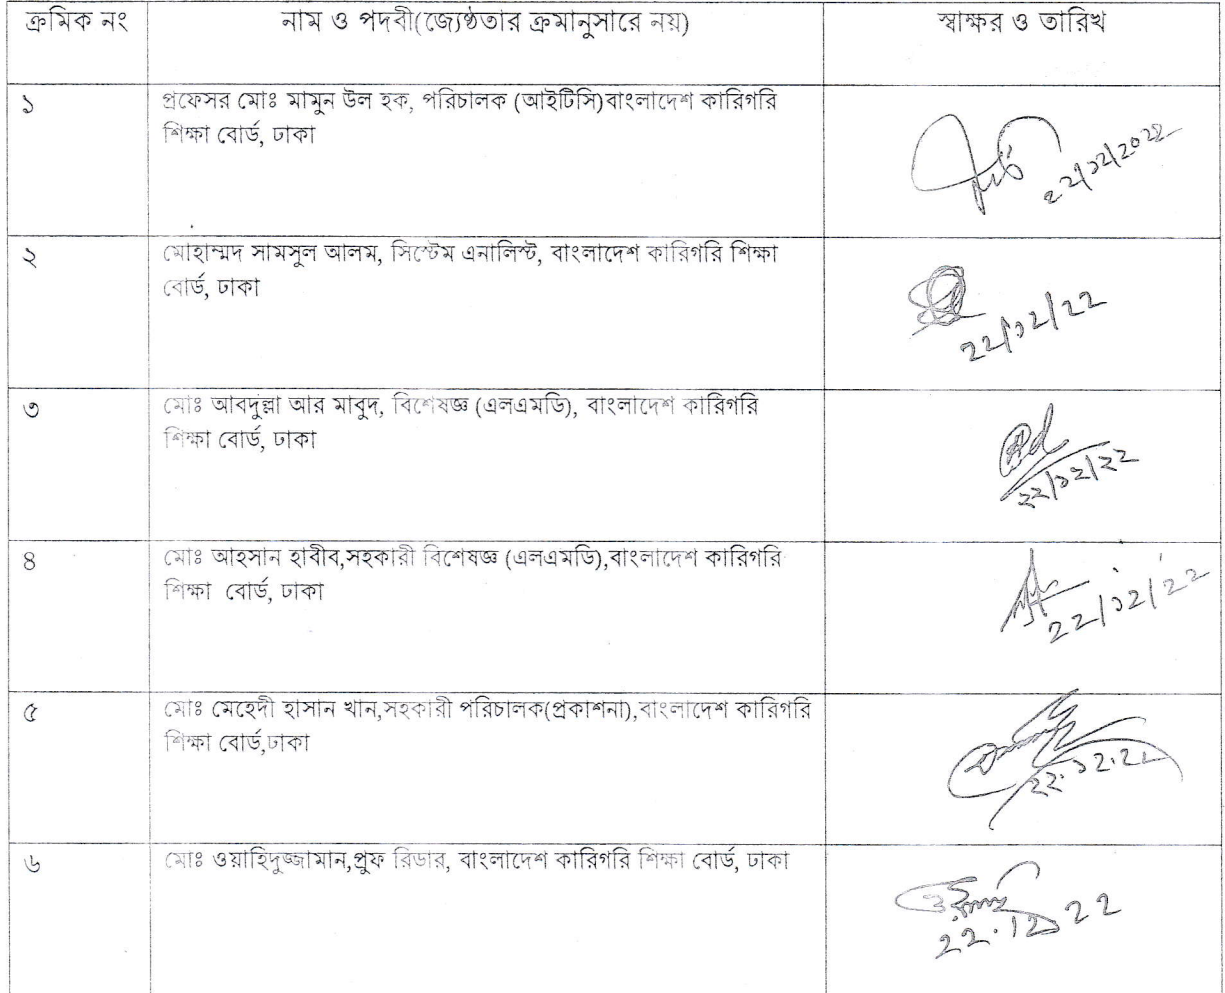 ক্রমিক নং নাম ও পদবী(জ্যেষ্ঠতার ক্রমানুসারে নয়) স্বাক্ষর ও তারিখ
১ প্রফেসর মোঃ মামুন উল হক, পরিচালক (আইটিসি)বাংলাদেশ কারিগরি
শিক্ষা বোর্ড, ঢাকা
২২/১২/২০২২
২ মোহাম্মদ সামসুল আলম, সিস্টেম এনালিস্ট, বাংলাদেশ কারিগরি শিক্ষা
বোর্ড, ঢাকা
২২/১২/২২
৩ মোঃ আবদুল্লা আর মাবুদ, বিশেষজ্ঞ (এলএমডি), বাংলাদেশ কারিগরি
শিক্ষা বোর্ড, ঢাকা
২২/১২/২২
৪ মোঃ আহসান হাবীব,সহকারী বিশেষজ্ঞ (এলএমডি),বাংলাদেশ কারিগরি
শিক্ষা বোর্ড, ঢাকা
২২/১২/২২
৫ মোঃ মেহেদী হাসান খান,সহকারী পরিচালক(প্রকাশনা),বাংলাদেশ কারিগরি
শিক্ষা বোর্ড,ঢাকা
২২.১২.২২
৬ মোঃ ওয়াহিদুজ্জামান,প্রুফ রিডার, বাংলাদেশ কারিগরি শিক্ষা বোর্ড, ঢাকা
22.12.22